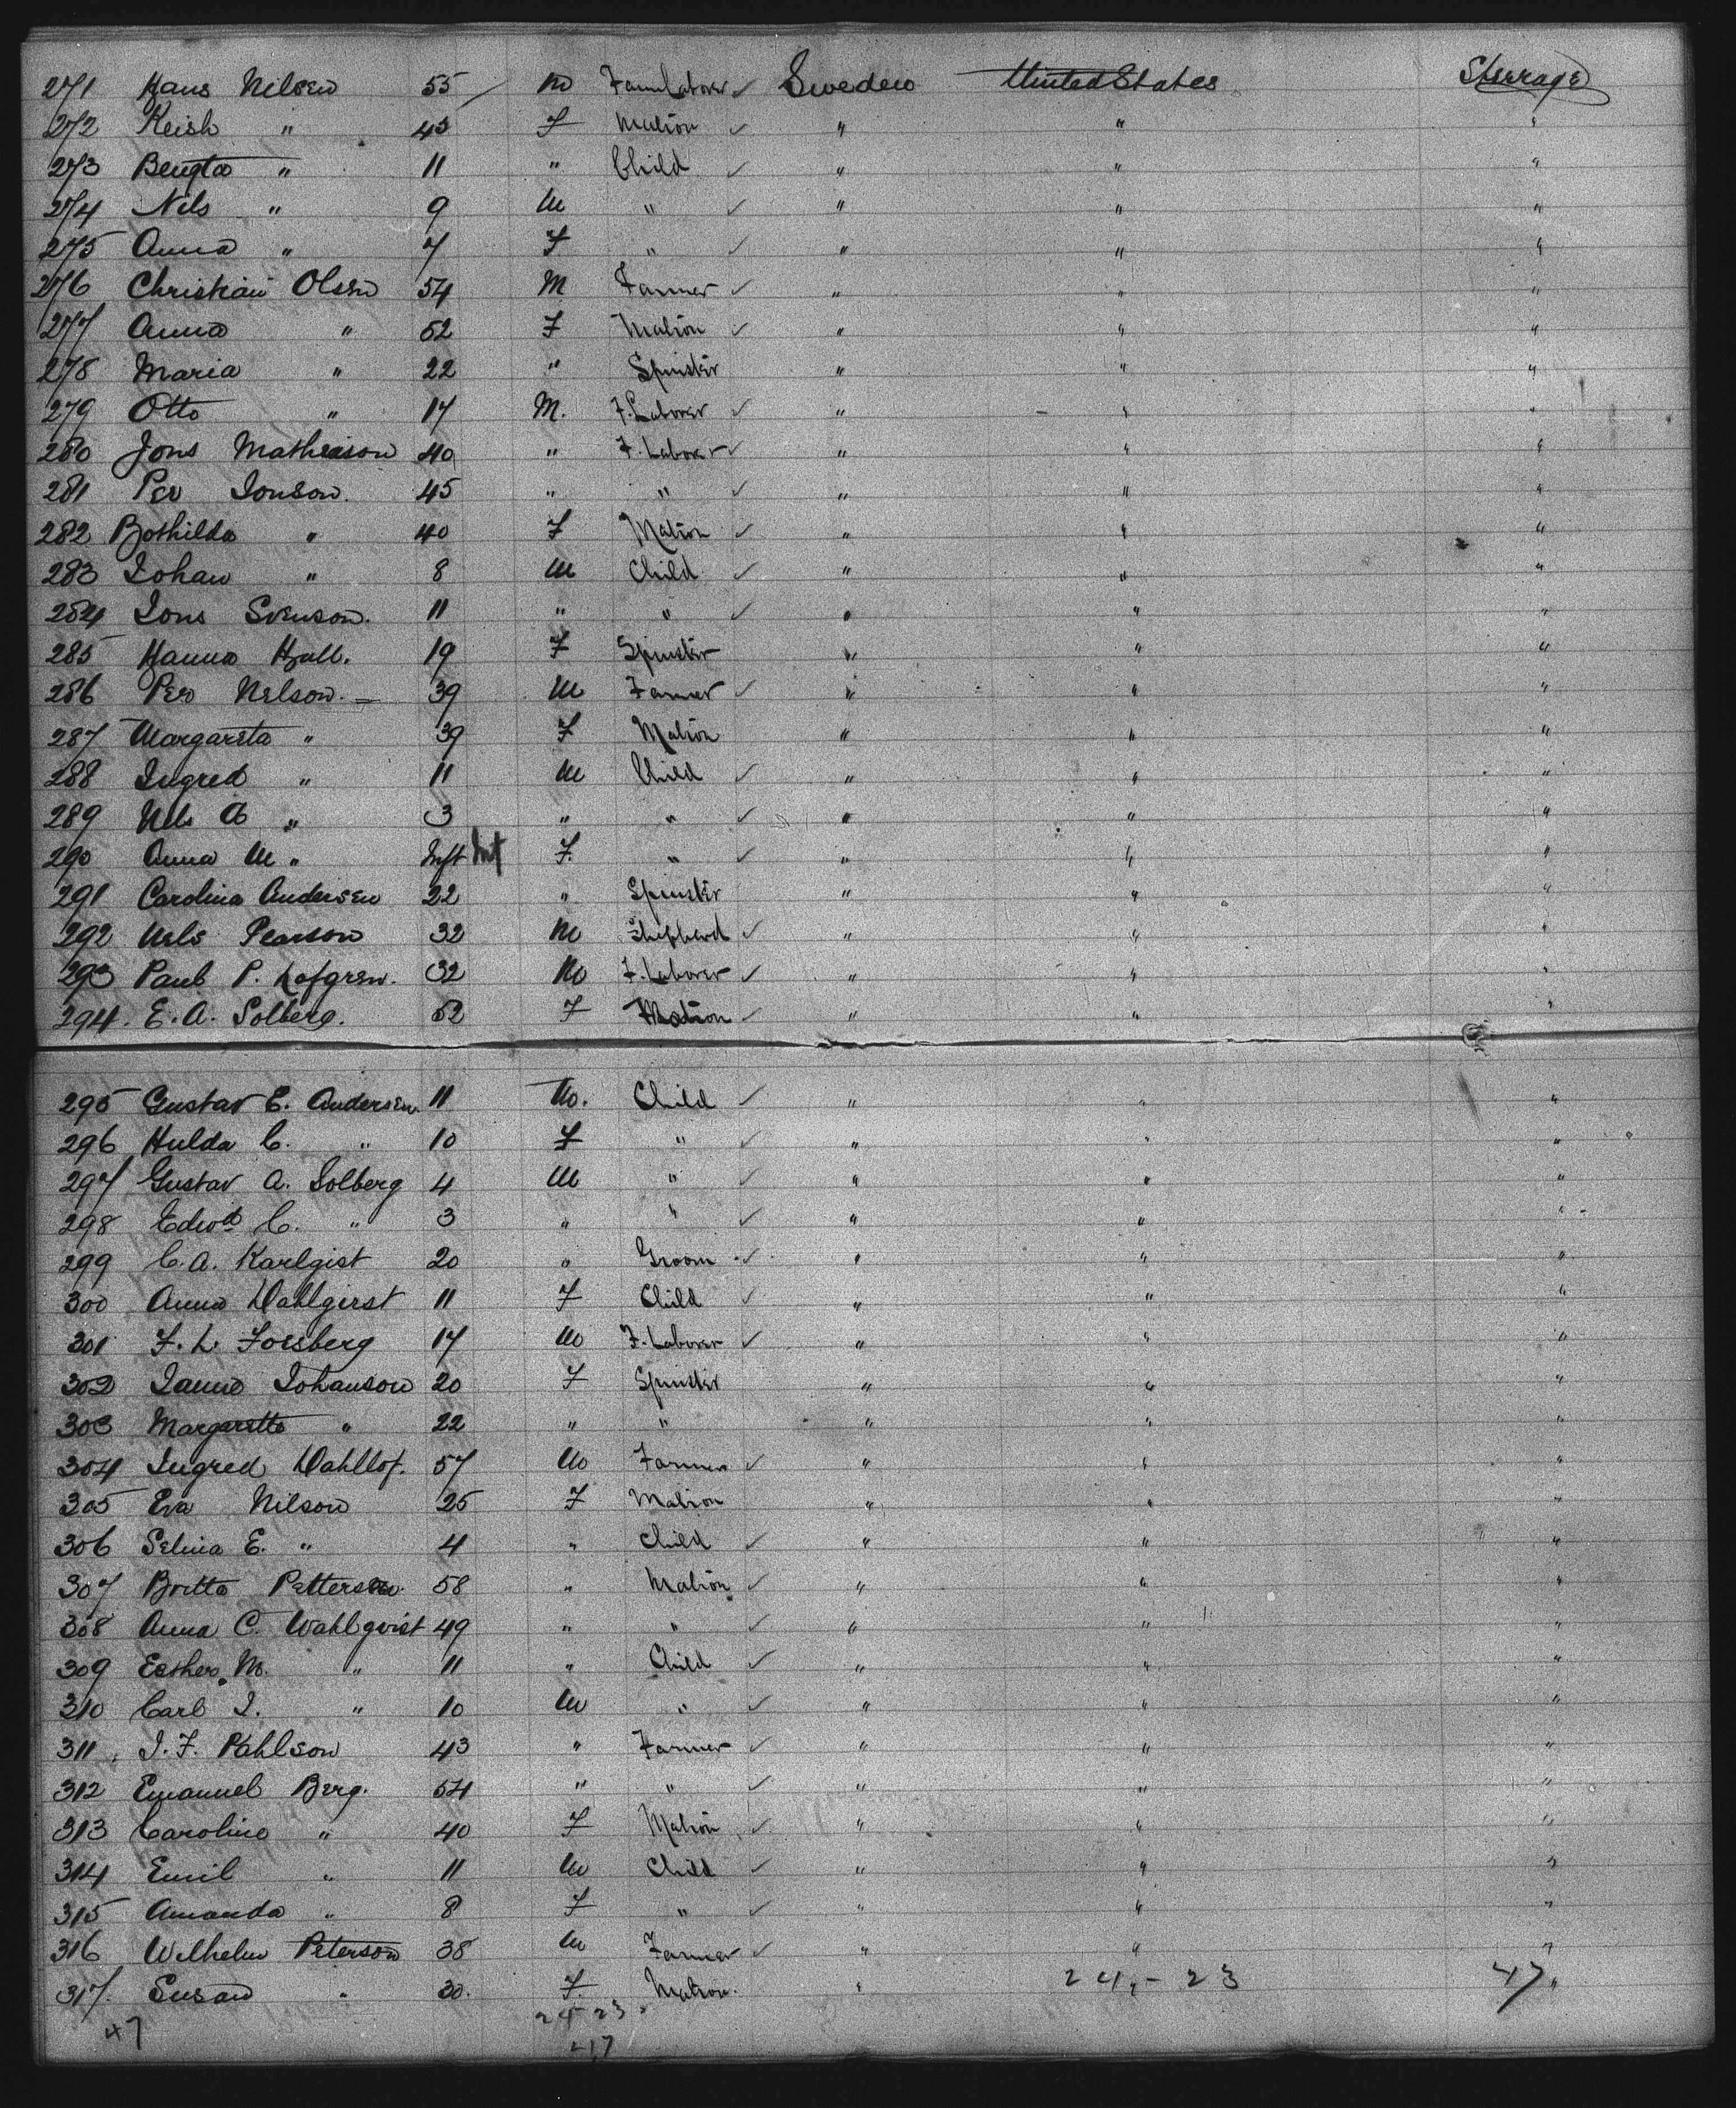 271 Hans Nilsen 55 / M Farm Laborer ✓ Sweden United States Steerage
272 Keish " 45 F Matron ✓ " " "
273 Bengta " 11 " Child ✓ " " "
274 Nils " 9 M " ✓ " " "
275 Anna " 7 F " ✓ " " "
276 Christian Olsen 54 M Farmer ✓ " " "
277 Anna " 52 F Matron ✓ " " "
278 Maria " 22 " Spinster " " "
279 Otto " 17 M. F. Laborer ✓ " " "
280 Jons Matheason 40 " F. Laborer ✓ " " "
281 Per Jonson. 45 " " ✓ " " "
282 Bothilda " 40 F Matron ✓ " " "
283 Johan " 8 M Child ✓ " " "
284 Jons Svenson. 11 " " ✓ " " "
285 Hanna Hall. 19 F Spinster " " "
286 Per Nelson. 39 M Farmer ✓ " " "
287 Margareta " 39 F Matron " " "
288 Ingred " 11 M Child ✓ " " "
289 Nels A " 3 " " ✓ " " "
290 Anna M " Inft Inf F. " ✓ " " "
291 Carolina Andersen 22 " Spinster " " "
292 Nels Pearson 32 M Shepherd ✓ " " "
293 Paul P. Lofgren. 32 M F. Laborer ✓ " " "
294. E. A. Solberg. 52 F Matron ✓ " " "
295 Gustav E. Andersen. 11 M. Child ✓ " " "
296 Hulda C. " 10 F " ✓ " " "
297 Gustav A. Solberg 4 M " ✓ " " "
298 Edwd C. " 3 " " ✓ " " "
299 C. A. Karlgist 20 " Groom ✓ " " "
300 Anna Dahlgirst 11 F Child ✓ " " "
301 F. L. Forsberg 17 M F. Laborer ✓ " " "
302 Janna Johanson 20 F Spinster " " "
303 Margaretta " 22 " " " " "
304 Ingred Dahllof. 57 M Farmer ✓ " " "
305 Eva Nilson 25 F Matron " " "
306 Selina E. " 4 " Child ✓ " " "
307 Britta Pettersen. 58 " Matron ✓ " " "
308 Anna C. Wahlqvist 49 " " ✓ " " "
309 Esther M. " 11 " Child ✓ " " "
310 Carl J. " 10 M " ✓ " " "
311 J. F. Pahlson 43 " Farmer ✓ " " "
312 Emanuel Berg. 54 " " ✓ " " "
313 Caroline " 40 F Matron ✓ " " "
314 Emil " 11 M Child ✓ " " "
315 Amanda " 8 F " ✓ " " "
316 Wilhelm Peterson 38 M Farmer ✓ " " "
317. Susan " 30. F. Matron. " 24 - 23 47 "
47 24 23
47